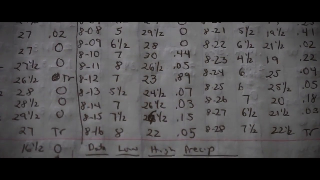 27 .02 8-08 5 29½ 0 8-21 5½ 19½ .41
27 0 8-09 6½ 28 0 8-22 6½ 21½ .02
27½ 0 8-10 7 20 .44 8-23 4½ 19 .22
26½ Tr 8-11 8 26½ .05 8-24 6 25 .04
28 0 8-12 7 23 .89 8-25 6 25½ .05
28½ 0 8-13 5½ 24½ .07 8-26 7 20 .18
29½ 0 8-14 7 26½ .03 8-27 6½ 21½ .03
27 Tr 8-15 7½ .15 8-28 7½ 22½ Tr
16½ 0 8-16 8 22 .05
Date Low High Precip